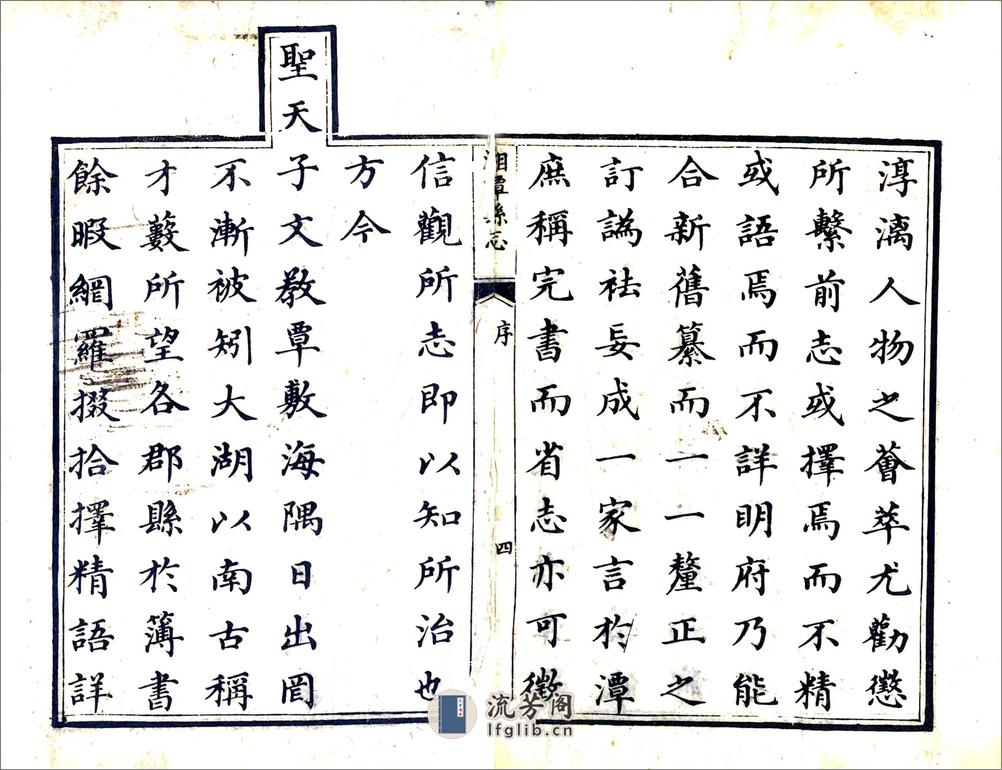 淳漓人物之薈萃尤勸懲
所繫前志或擇焉而不精
或語焉而不詳明府乃能
合新舊纂而一一釐正之
訂譌祛妄成一家言於潭
庶稱完書而省志亦可徵
湘潭縣志
序
四
信觀所志即以知所治也
方今
聖天子文敎覃敷海隅日出罔
不漸被矧大湖以南古稱
才藪所望各郡縣於簿書
餘暇網羅掇拾擇精語詳
流芳阁
lfglib.cn